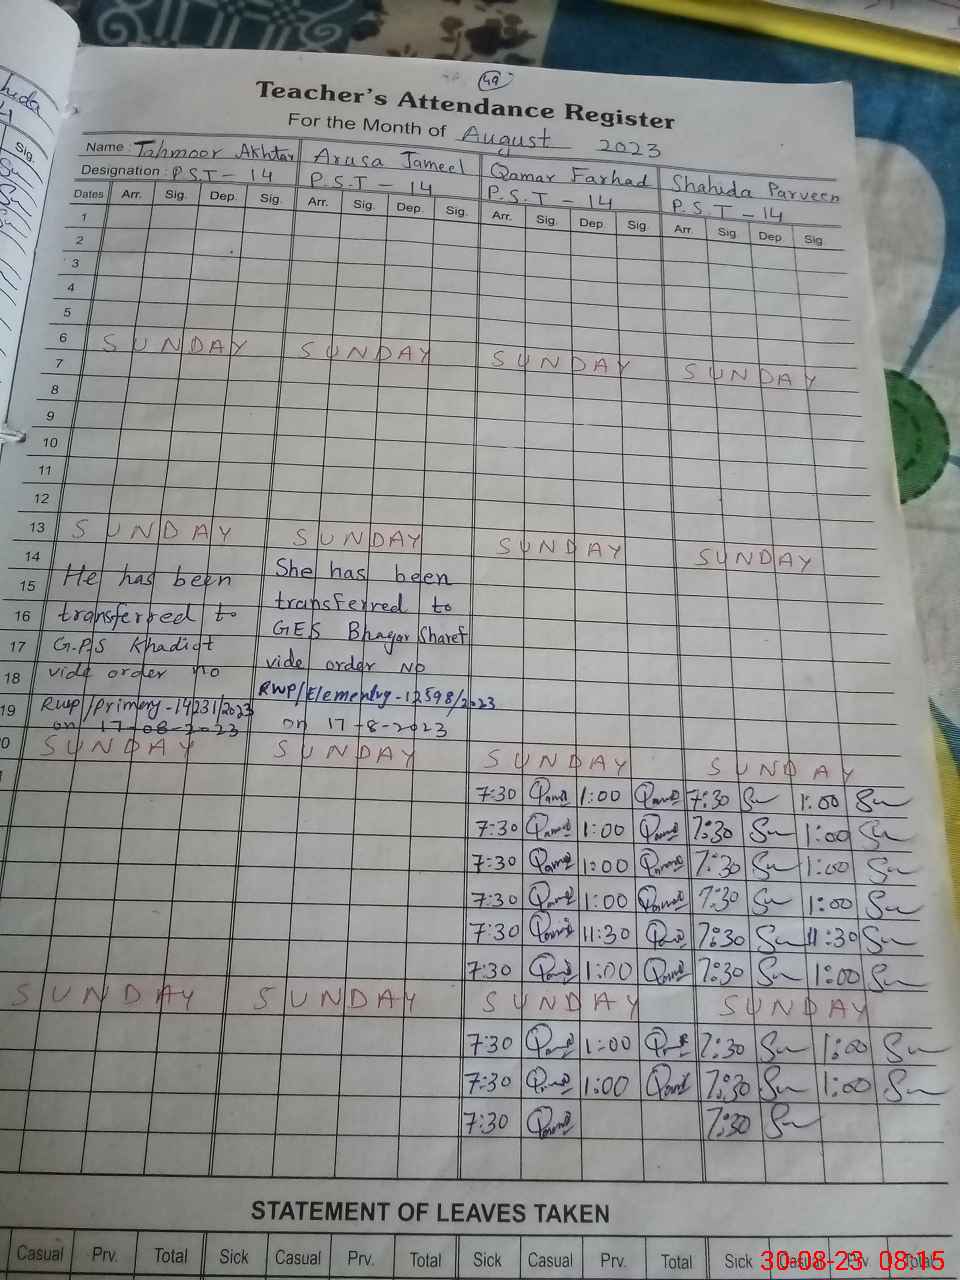 49
Teacher's Attendance Register
For the Month of August 2023
Name : Tahmoor Akhtar Arusa Jameel Qamar Farhad Shahida Parveen
Designation : P.S.T - 14 P.S.T - 14 P.S.T - 14 P.S.T - 14
Dates Arr. Sig. Dep. Sig. Arr. Sig. Dep. Sig. Arr. Sig. Dep. Sig. Arr. Sig. Dep. Sig.
1
2
3
4
5
6 SUNDAY SUNDAY SUNDAY SUNDAY
7
8
9
10
11
12
13 SUNDAY SUNDAY SUNDAY SUNDAY
14
15 He has been She has been
16 transferred to transferred to
17 G.P.S Khadiot GES Bhagar Sharef
18 vide order no vide order no
19 RWP/Primery-14231/2023 RWP/Elementry-12598/2023
on 17-08-2023 on 17-8-2023
0 SUNDAY SUNDAY SUNDAY SUNDAY
7:30 Qamar 1:00 Qamar 7:30 1:00
7:30 Qamar 1:00 Qamar 7:30 1:00
7:30 Qamar 1:00 Qamar 7:30 1:00
7:30 Qamar 1:00 Qamar 7:30 1:00
7:30 Qamar 11:30 Qamar 7:30 11:30
7:30 Qamar 1:00 Qamar 7:30 1:00
SUNDAY SUNDAY SUNDAY SUNDAY
7:30 Qamar 1:00 Qamar 7:30 1:00
7:30 Qamar 1:00 Qamar 7:30 1:00
7:30 Qamar 7:30
STATEMENT OF LEAVES TAKEN
Casual Prv. Total Sick Casual Prv. Total Sick Casual Prv. Total Sick Casual Prv Total
30-08-23 08:15